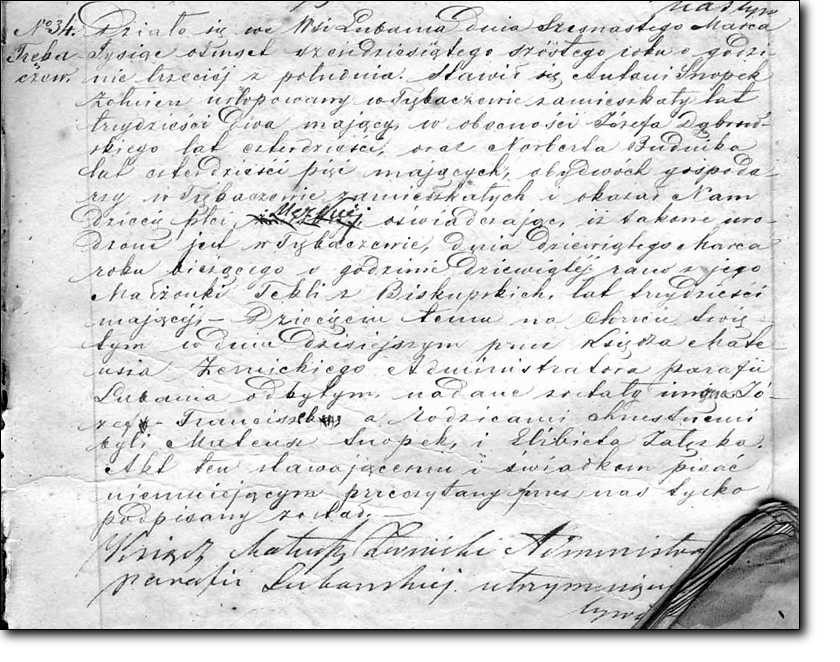 No 34. Działo się we Wsi Lubania dnia Szesnastego Marca
Tręba Tysiąc ośmset sześdziesiątego szóstego roku o godzi-
czew. nie trzeciéj z południa. Stawił się Antoni Snopek
żołnierz urlopowany w Trębaczewie zamieszkały lat
trzydzieści dwa mający, w obecności Józefa Dąbrow-
skiego lat czterdzieści, oraz Norberta Budnika
lat czterdzieści pięć mających, obydwóch gospoda-
rzy w Trębaczewie zamieszkałych i okazał Nam
dziecię płci Męzkiéj oświadczając, iż takowe uro-
dzone jest w Trębaczewie, dnia dziewiątego Marca
roku bieżącego o godzinie dziewiątéj rano z jego
Małżonki Tekli z Biskupskich, lat trzydzieści
mającéj,— Dziecięciu temu na Chrzcie Świę-
tym w dniu dzisiejszym przez Księdza Mate-
usza Żernickiego Administratora parafii
Lubania odbytym, nadane zostały imiona Jó-
zef - Franciszek, a Rodzicami chrzestnemi
byli Mateusz Snopek, i Elżbieta Zalęska.
Akt ten stawającemu i świadkom pisać
nieumiejącym przeczytany przez nas tylko
podpisany został.—
Ksiądz Mateusz Żernicki Administra
parafii Lubańskiéj utrzymując